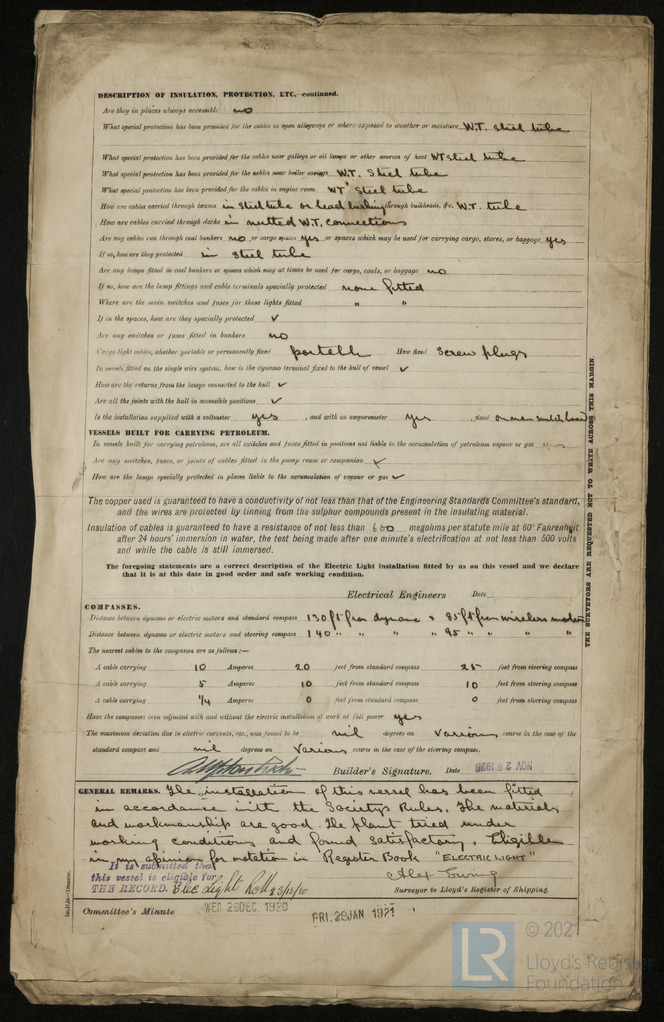 DESCRIPTION OF INSULATION, PROTECTION, ETC.—continued.
Are they in places always accessible no
What special protection has been provided for the cables in open alleyways or where exposed to weather or moisture W.T. steel tube
What special protection has been provided for the cables near galleys or oil lamps or other sources of heat WT steel tube
What special protection has been provided for the cables near boiler casings W.T. Steel tube
What special protection has been provided for the cables in engine room WT Steel tube
How are cables carried through beams in steel tube or lead bushing through bulkheads, &c. W.T. tube
How are cables carried through decks in nutted W.T. connections
Are any cables run through coal bunkers no or cargo spaces yes or spaces which may be used for carrying cargo, stores, or baggage yes
If so, how are they protected in steel tube
Are any lamps fitted in coal bunkers or spaces which may at times be used for cargo, coals, or baggage no
If so, how are the lamp fittings and cable terminals specially protected none fitted
Where are the main switches and fuses for these lights fitted " "
If in the spaces, how are they specially protected ✓
Are any switches or fuses fitted in bunkers no
Cargo light cables, whether portable or permanently fixed portable How fixed Screw plugs
In vessels fitted on the single wire system, how is the dynamo terminal fixed to the hull of vessel ✓
How are the returns from the lamps connected to the hull ✓
Are all the joints with the hull in accessible positions ✓
Is the installation supplied with a voltmeter yes, and with an amperemeter yes, fixed on main switch board
VESSELS BUILT FOR CARRYING PETROLEUM.
In vessels built for carrying petroleum, are all switches and fuses fitted in positions not liable to the accumulation of petroleum vapour or gas
Are any switches, fuses, or joints of cables fitted in the pump room or companion
How are the lamps specially protected in places liable to the accumulation of vapour or gas ✓
The copper used is guaranteed to have a conductivity of not less than that of the Engineering Standards Committee's standard,
and the wires are protected by tinning from the sulphur compounds present in the insulating material.
Insulation of cables is guaranteed to have a resistance of not less than 600 megohms per statute mile at 60° Fahrenheit
after 24 hours' immersion in water, the test being made after one minute's electrification at not less than 500 volts
and while the cable is still immersed.
The foregoing statements are a correct description of the Electric Light installation fitted by us on this vessel and we declare
that it is at this date in good order and safe working condition.
Electrical Engineers Date
COMPASSES.
Distance between dynamo or electric motors and standard compass 130 ft from dynamo & 85 ft from wireless motor
Distance between dynamo or electric motors and steering compass 140 " " " " 95 " " " "
The nearest cables to the compasses are as follows:—
A cable carrying 10 Amperes 20 feet from standard compass 25 feet from steering compass
A cable carrying 5 Amperes 10 feet from standard compass 10 feet from steering compass
A cable carrying 1/4 Amperes 0 feet from standard compass 0 feet from steering compass
Have the compasses been adjusted with and without the electric installation at work at full power yes
The maximum deviation due to electric currents, etc., was found to be nil degrees on Various course in the case of the
standard compass and nil degrees on Various course in the case of the steering compass.
Builder's Signature. Date NOV 26 1920
GENERAL REMARKS. The installation of this vessel has been fitted
in accordance with the Society's Rules. The materials
and workmanship are good. The plant tried under
working conditions and found satisfactory. Eligible
in my opinion for notation in Register Book "ELECTRIC LIGHT"
It is submitted that
this vessel is eligible for
THE RECORD. Elec Light
Alex Ewing
Surveyor to Lloyd's Register of Shipping.
Committee's Minute WED. 29 DEC. 1920 FRI. 28 JAN. 1921
THE SURVEYORS ARE REQUESTED NOT TO WRITE ACROSS THIS MARGIN
© 2021
LR
Lloyd's Register
Foundation